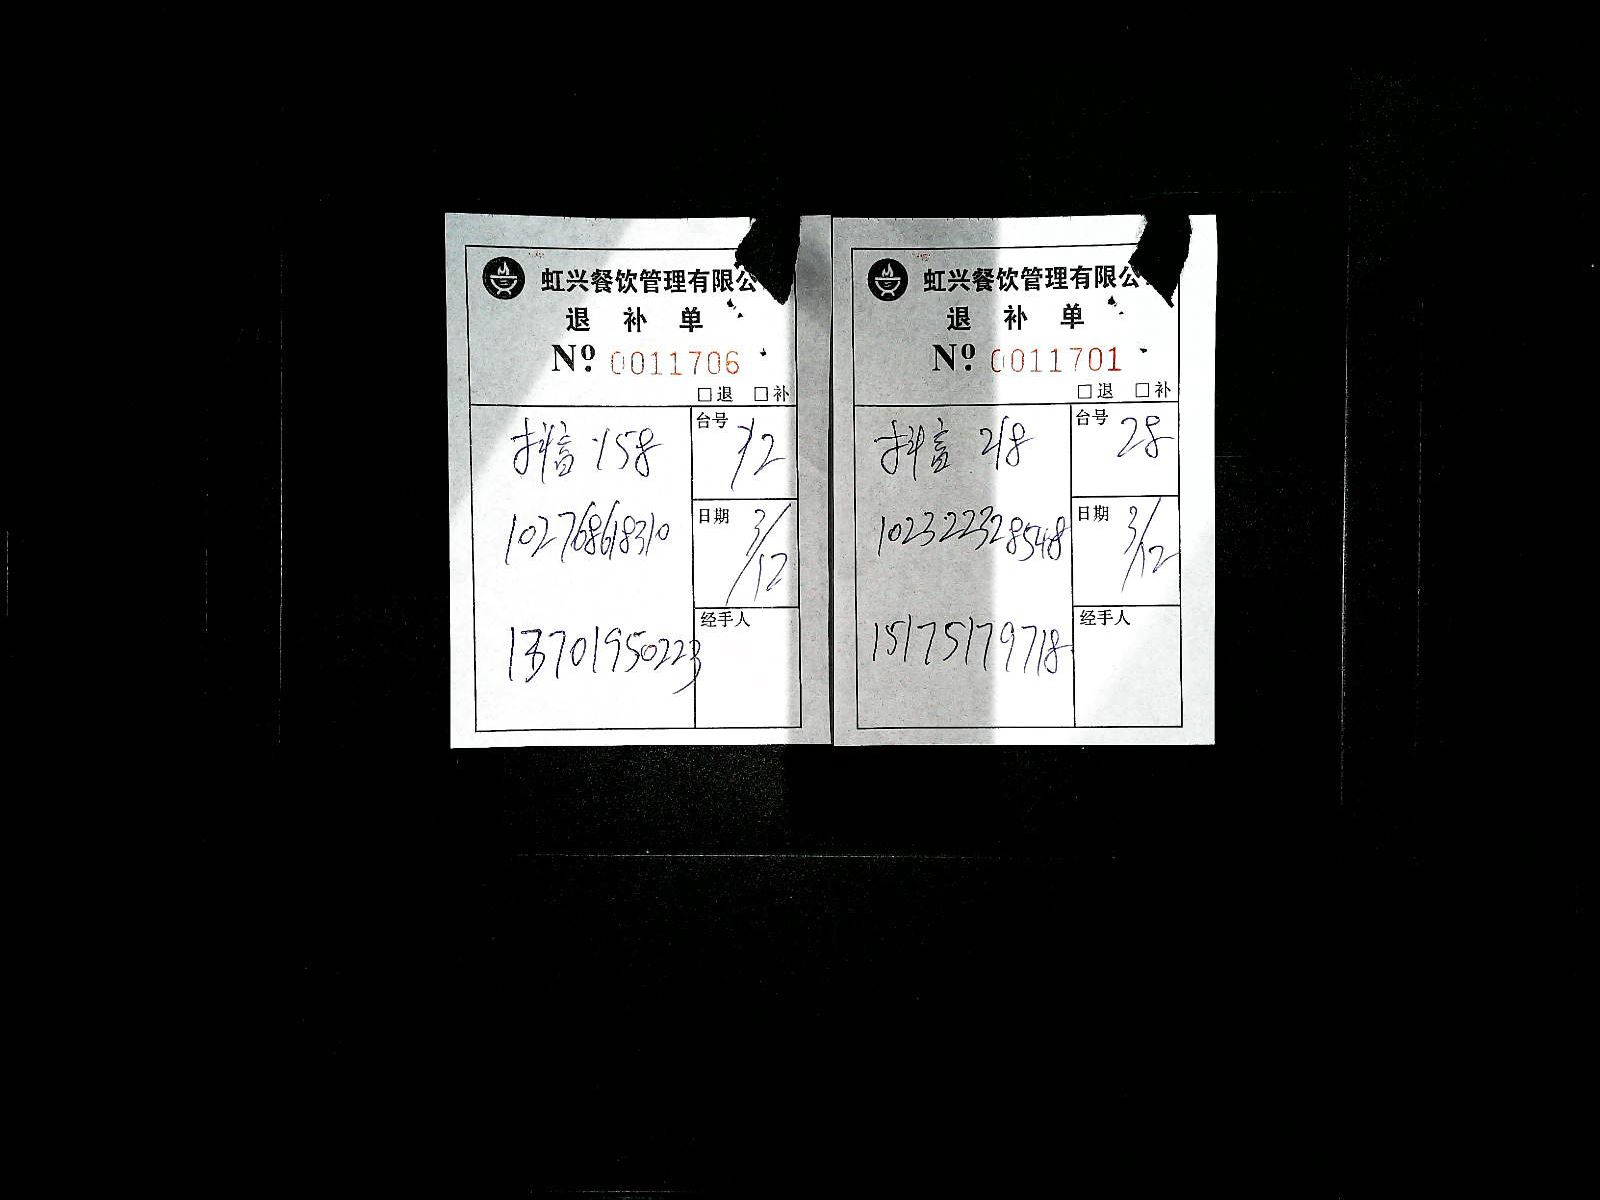 虹兴餐饮管理有限公
退 补 单
Nº. 0011706
□退 □补
抖音 158
台号 12
102768618310
日期 3/12
13701950223
经手人
虹兴餐饮管理有限公
退 补 单
Nº. 0011701
□退 □补
抖音 218
台号 28
102322328548
日期 3/12
15175179718
经手人